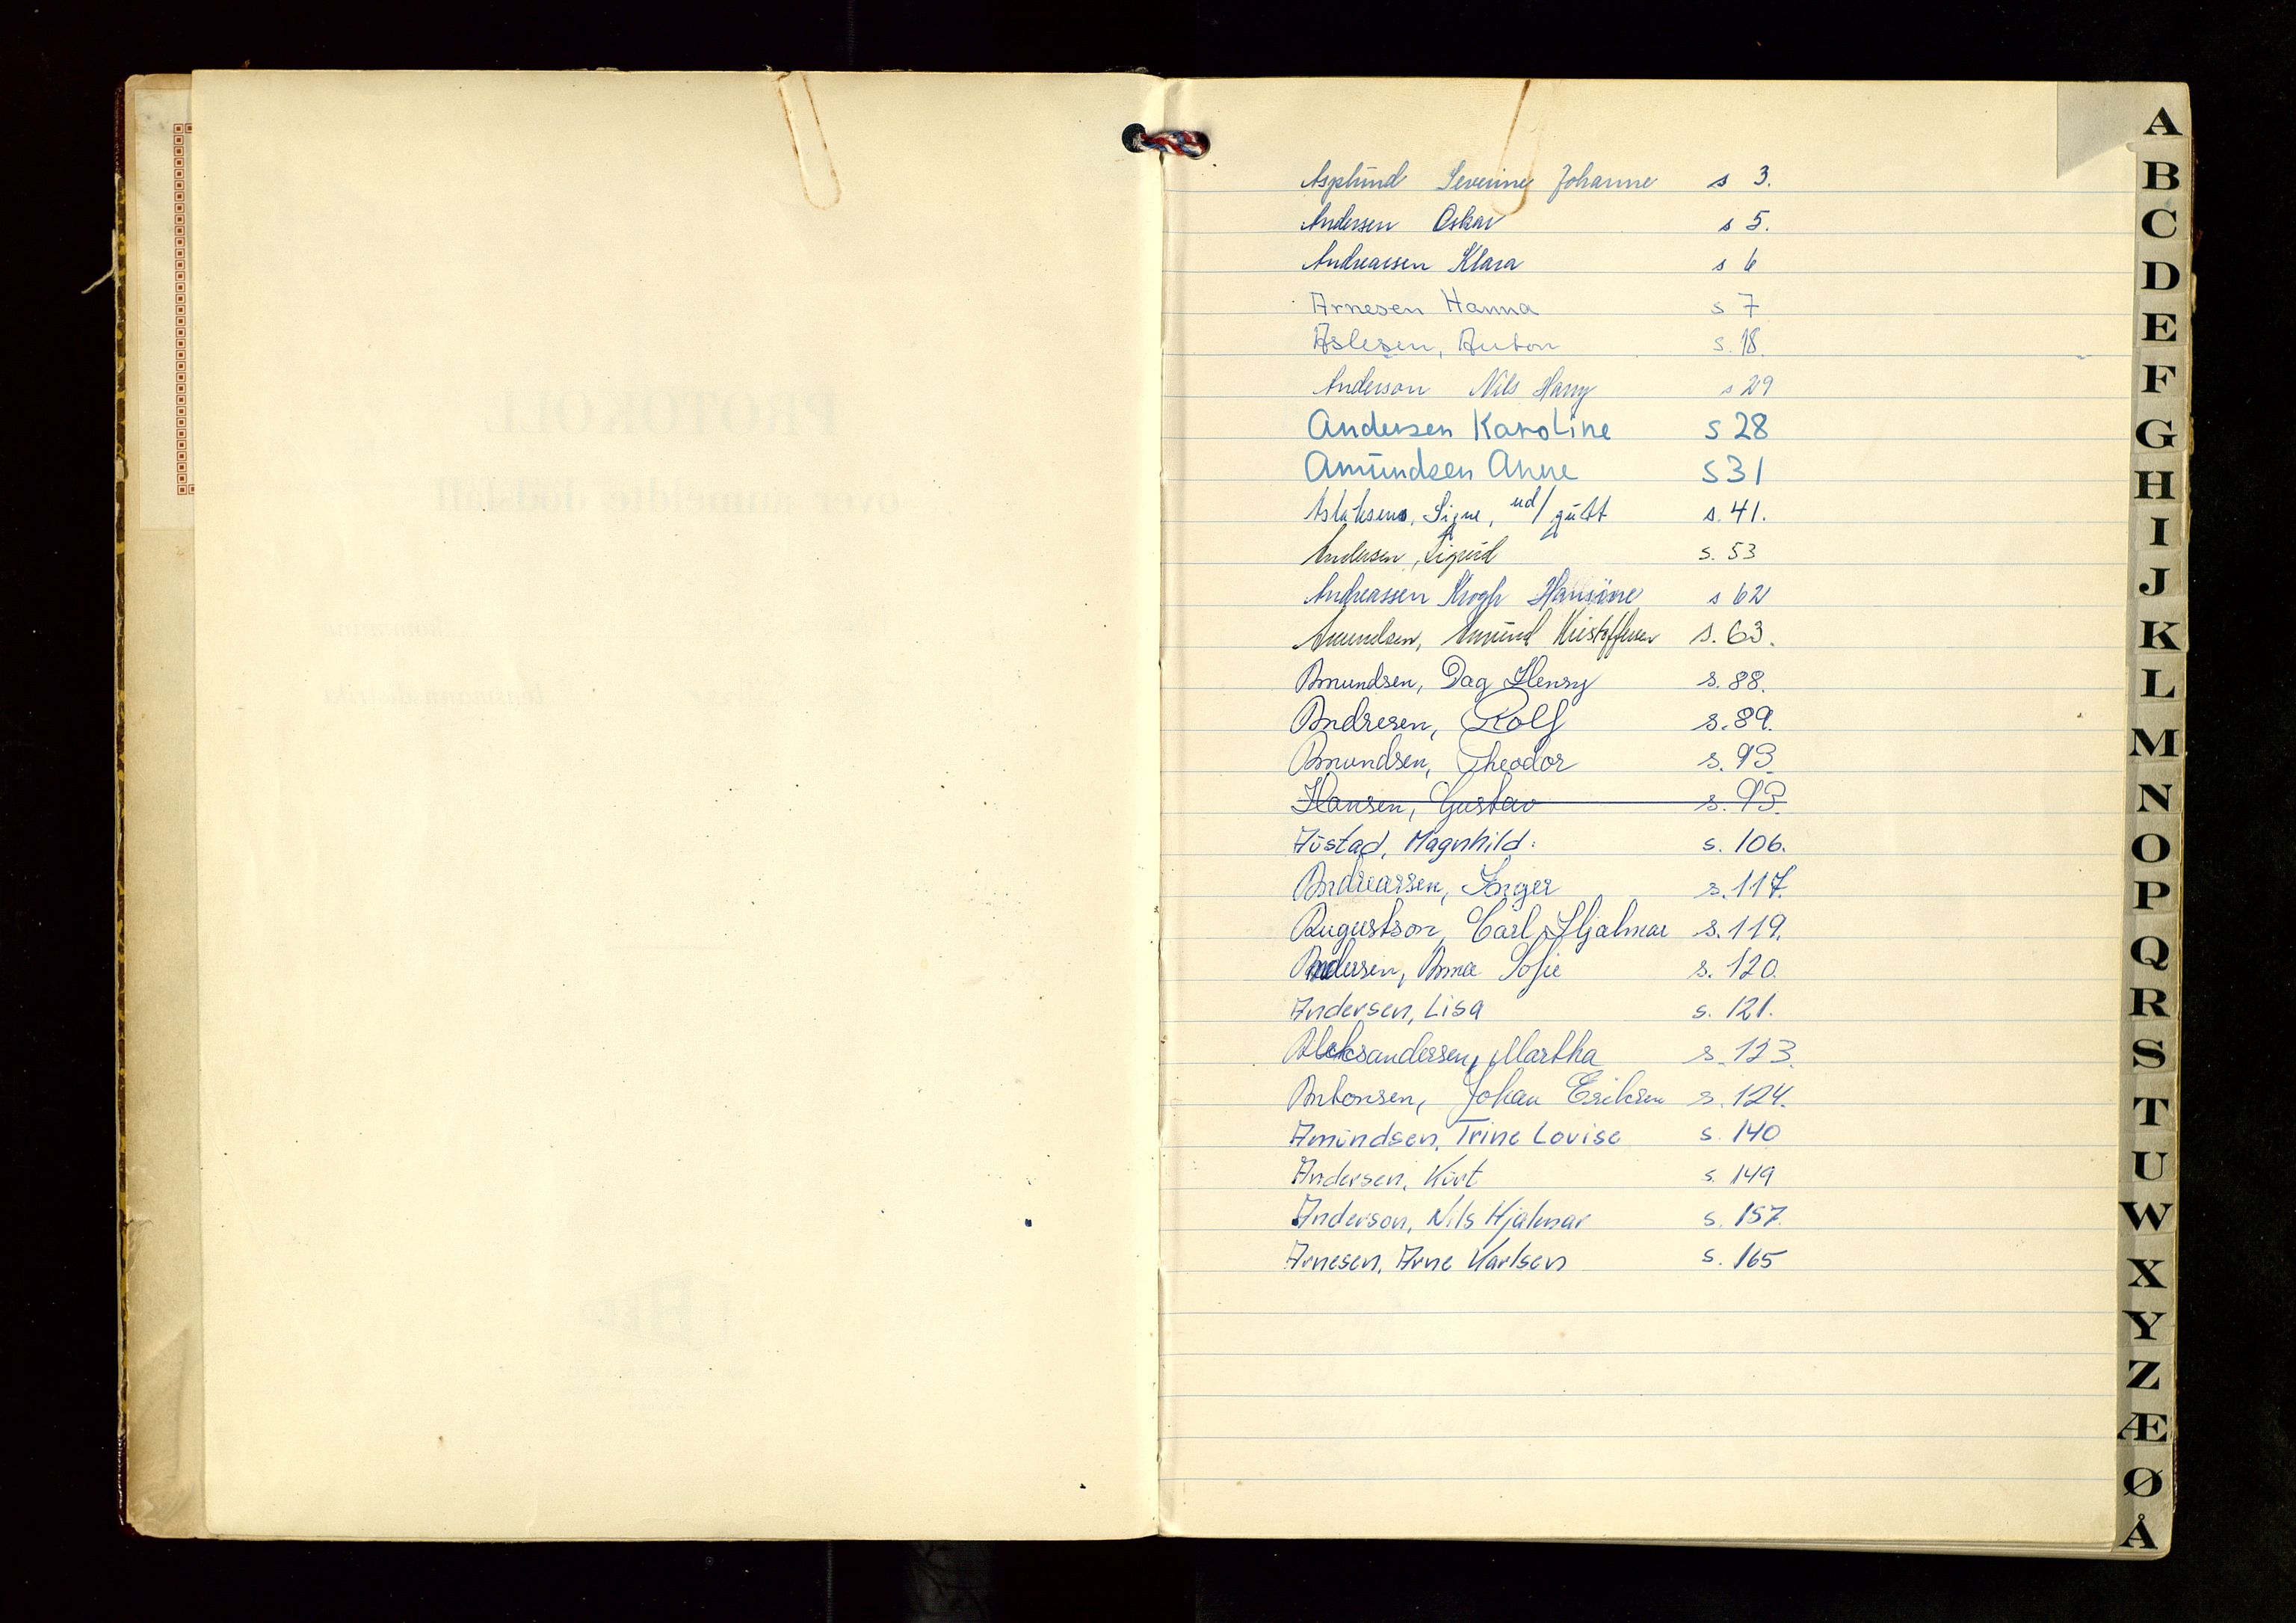 Asplund Severine Johanne s 3.
Andersen Oskar s 5.
Andreassen Klara s 6
Arnesen Hanna s 7
Aslesen, Anton s. 18.
Anderson Nils Harry s 29
Andersen Karoline s 28
Amundsen Anne s 31
Aslaksen, Signe, ud/gått s. 41.
Andersen, Sigurd s. 53
Andreassen Krogh s 62
Amundsen, Amund Kristoffersen s. 63.
Amundsen, Dag Henry s. 88.
Andresen, Rolf s. 89.
Amundsen, Theodor s. 93
Hansen, Gustav s. 93.
Austad, Magnhild. s. 106.
Andreassen, Inger s. 117.
Augustson, Carl Hjalmar s. 119.
Andersen, Anna Sofie s. 120.
Andersen, Lisa s. 121.
Aleksandersen, Martha s. 123.
Antonsen, Johan Eriksen s. 124.
Amundsen, Trine Lovise s. 140
Andersen, Kurt s. 149
Anderson, Nils Hjalmar s. 157.
Arnesen, Arne Karlsen s. 165
A
B
C
D
E
F
G
H
I
J
K
L
M
N
O
P
Q
R
S
T
U
W
X
Y
Z
Æ
Ø
Å
PROTOKOLL
over anmeldte dødsfall
kommune
lensmannsdistrikt